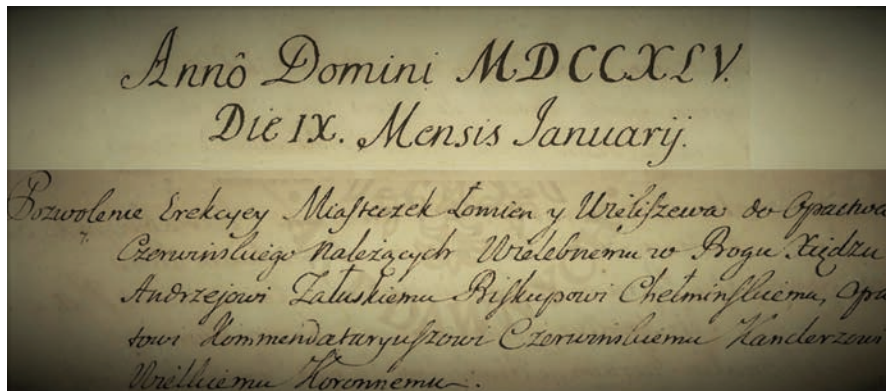 Annô Domini MDCCXLV.
Die IX. Mensis Ianuarij.
Pozwolenie Erekcyey Miasteczek Łomien y Wieliszewa do Opactwa
Czerwinskiego należących Wielebnemu w Bogu Xiędzu
Andrzejowi Załuskiemu Biskupowi Chełminskiemu, Opa
towi Kommendataryuszowi Czerwinskiemu Kanclerzowi
Wielkiemu Koronnemu.